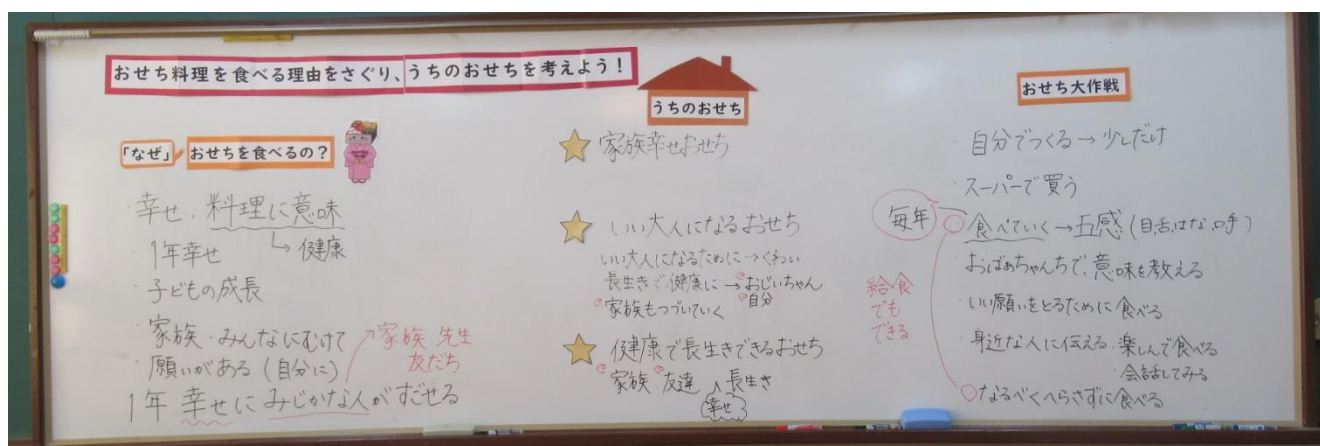 おせち料理を食べる理由をさぐり、うちのおせちを考えよう！
「なぜ」おせちを食べるの？
・幸せ、料理に意味
↳健康
・1年幸せ
・子どもの成長
・家族・みんなにむけて
・願いがある(自分に)
↗家族 先生
友だち
1年 幸せに みじかな人がすごせる
うちのおせち
家族幸せおせち
いい大人になるおせち
いい大人になるために→くわい
長生きで健康に→おじいちゃん
自分
家族もつづいていく
健康で長生きできるおせち
家族 友達 長生き
幸せ
おせち大作戦
・自分でつくる→少しだけ
・スーパーで買う
毎年
食べていく→五感(目舌はな口手)
・おばあちゃんちで、意味を教える
・いい願いをとるために食べる
給食
でも
できる
・身近な人に伝える・楽しんで食べる
・会話してみる
なるべくへらさずに食べる